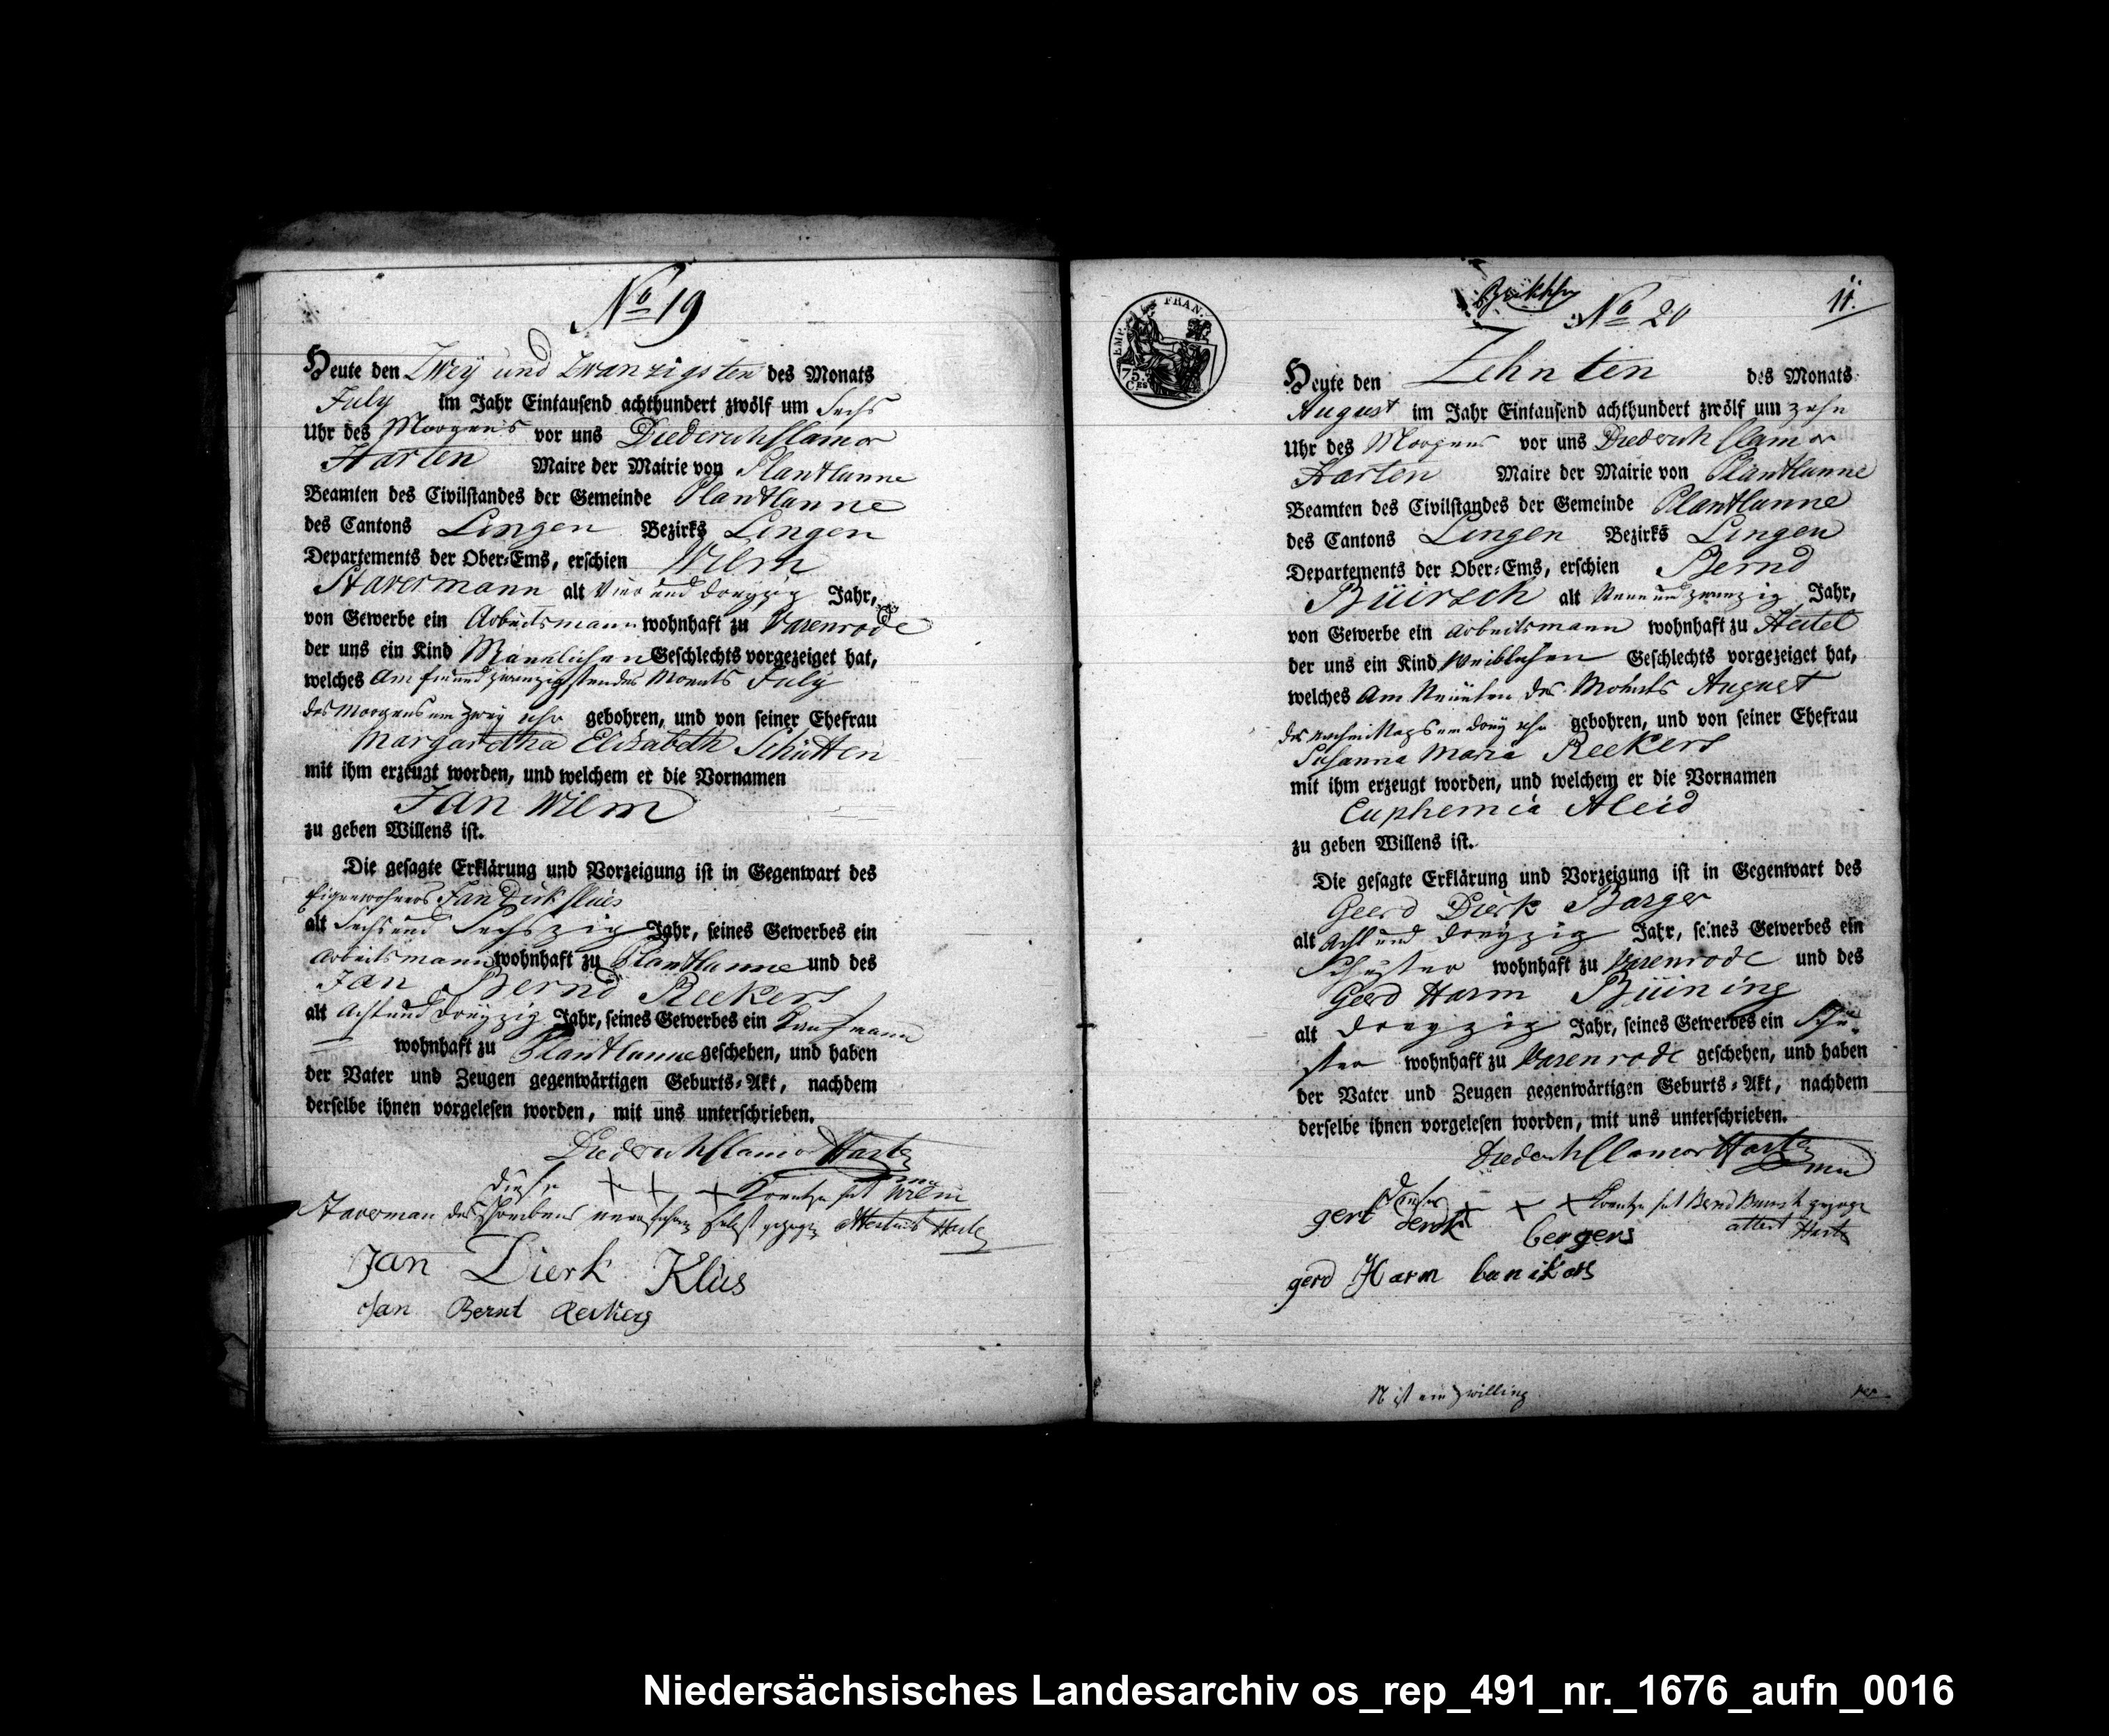 No 19
Heute den Zwey und Zwanzigsten des Monats
July im Jahr Eintausend achthundert zwölf um Sechs
Uhr des Morgens vor uns Diederich Clamor
Harten Maire der Mairie von Plantlunne
Beamten des Civilstandes der Gemeinde Plantlunne
des Cantons Lingen Bezirks Lingen
Departements der Ober-Ems, erschien Wilm
Havermann alt Vier und dreyzig Jahr,
von Gewerbe ein Arbeitsmann wohnhaft zu Varenrode
der uns ein Kind Männlichen Geschlechts vorgezeiget hat,
welches Am ein und zwanzigsten des Monats July
des Morgens um Zwey uhr gebohren, und von seiner Ehefrau
Margaretha Elisabeth Schütten
mit ihm erzeugt worden, und welchem er die Vornamen
Jan Wilm
zu geben Willens ist.
Die gesagte Erklärung und Vorzeigung ist in Gegenwart des
Jan Dirk Klues
alt Sechs und Sechszig Jahr, seines Gewerbes ein
Arbeitsmann wohnhaft zu Plantlunne und des
Jan Bernd Reekers
alt Acht und dreyzig Jahr, seines Gewerbes ein Kaufmann
wohnhaft zu Plantlunne geschehen, und haben
der Vater und Zeugen gegenwärtigen Geburts-Akt, nachdem
derselbe ihnen vorgelesen worden, mit uns unterschrieben.
Diederich Clamor Harten
diese + + + Kreutze hat Wilm
Haverman des Schreibens unerfahren selbst gezogen Harten
Jan Dierk Klüs
Jan Bernt Reekers
EMP. FRAN.
75.
CES
No 20
11.
Heute den Zehnten des Monats
August im Jahr Eintausend achthundert zwölf um zehn
Uhr des Morgens vor uns Diederich Clamor
Harten Maire der Mairie von Plantlunne
Beamten des Civilstandes der Gemeinde Plantlunne
des Cantons Lingen Bezirks Lingen
Departements der Ober-Ems, erschien Bernd
Büirsch alt Neun und zwanzig Jahr,
von Gewerbe ein Arbeitsmann wohnhaft zu Heitel
der uns ein Kind Weiblichen Geschlechts vorgezeiget hat,
welches Am Neunten des Monats August
des nachmittags um drey uhr gebohren, und von seiner Ehefrau
Susanna Maria Reekers
mit ihm erzeugt worden, und welchem er die Vornamen
Euphemia Aleid
zu geben Willens ist.
Die gesagte Erklärung und Vorzeigung ist in Gegenwart des
Geerd Dierk Barger
alt Acht und dreyzig Jahr, seines Gewerbes ein
Schuster wohnhaft zu Varenrode und des
Geerd Harm Büining
alt dreyzig Jahr, seines Gewerbes ein Schu-
ster wohnhaft zu Varenrode geschehen, und haben
der Vater und Zeugen gegenwärtigen Geburts-Akt, nachdem
derselbe ihnen vorgelesen worden, mit uns unterschrieben.
Diederich Clamor Harten
Diese + + + Kreutze hat Bernd Buirsch gezogen
attest Harten
gert derk bergers
gerd Harm
N ist ein Zwilling
Niedersächsisches Landesarchiv os_rep_491_nr._1676_aufn_0016